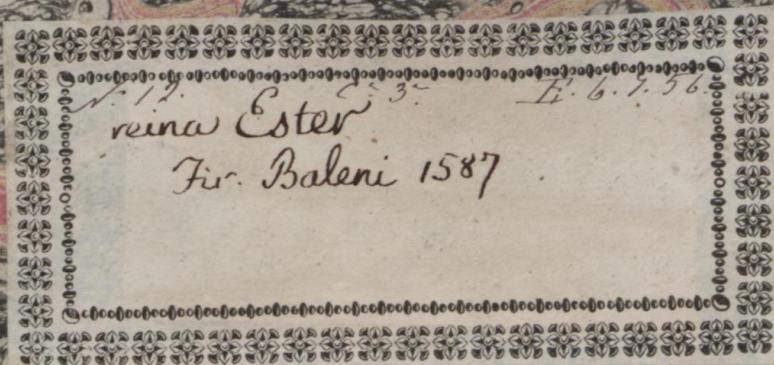 N. 12. C. 3. E. 6. 7. 56.
reina Ester
Fir. Baleni 1587